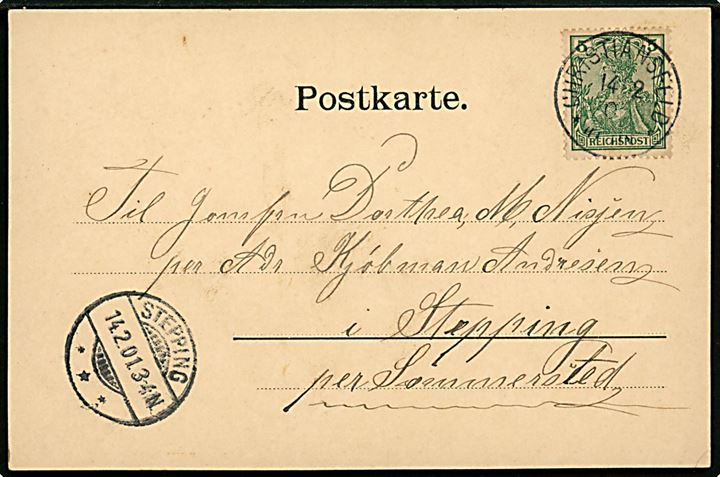 5 5
REICHSPOST
CHRISTIANSFELD
14 2
Postkarte.
Til Jomfru Dorthea, M, Nissen
per Adr Kjøbman Andresen
i Stepping
per Sommersted
STEPPING
14.2.01.3-4N.